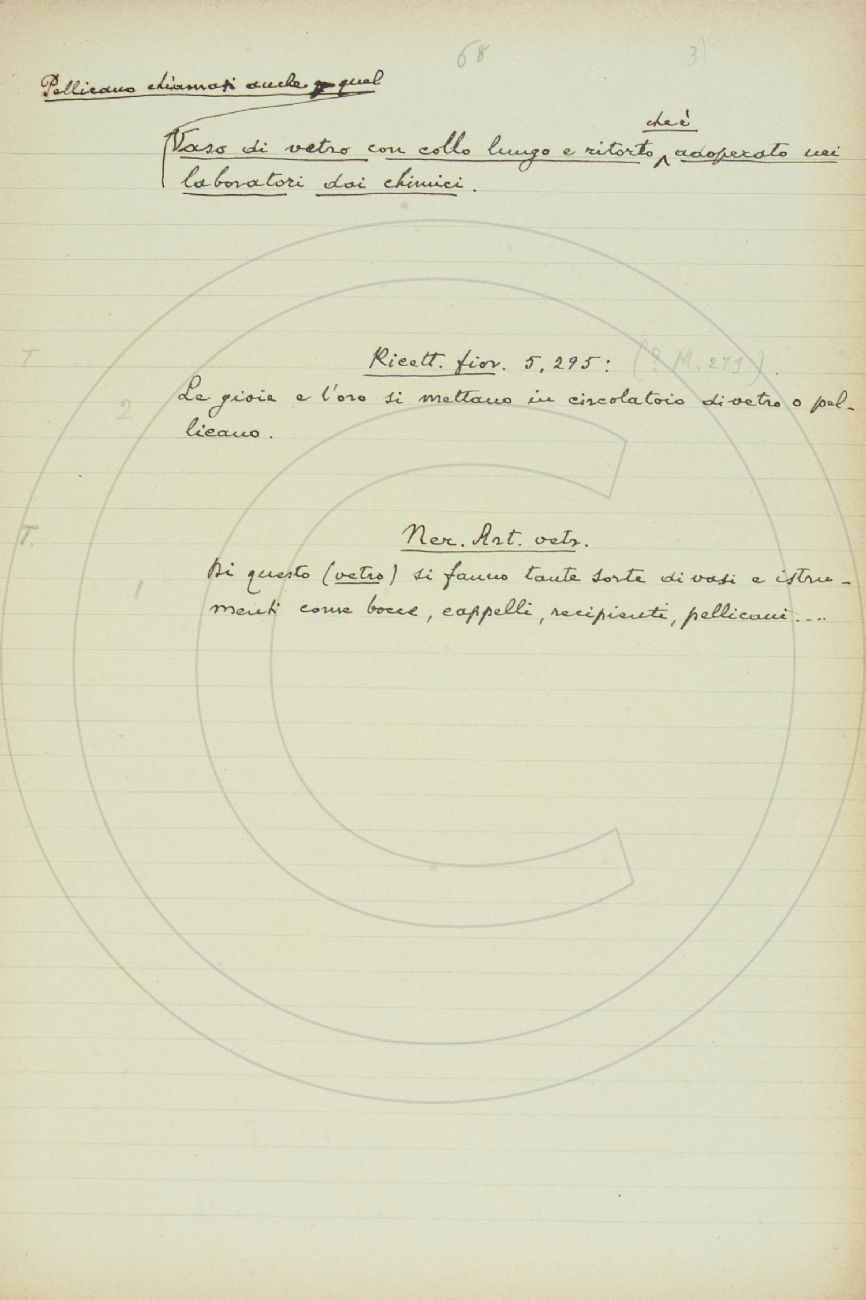 68 3)
Pellicano chiamasi anche quel
che è
Vaso di vetro con collo lungo e ritorto, adoperato nei
laboratori dai chimici.
T Ricett. fior. 5, 295: (? M. 279).
2 Le gioie e l'oro si mettano in circolatoio di vetro o pel-
licano.
T. Ner. Art. vetr.
1 Di questo (vetro) si fanno tante sorte di vasi e istru-
menti come bocce, cappelli, recipienti, pellicani....